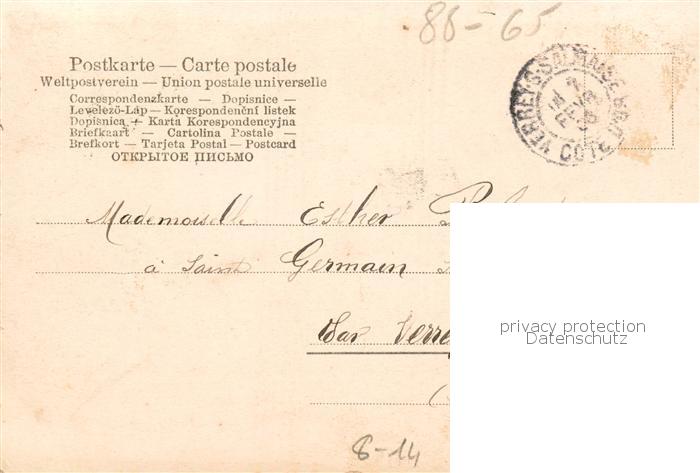 88-65
Postkarte — Carte postale
Weltpostverein — Union postale universelle
Correspondenzkarte — Dopisnice —
Levelező-Láp — Korespondenční listek
Dopisnica — Karta Korespondencyjna
Briefkaart — Cartolina Postale —
Brefkort — Tarjeta Postal — Postcard
ОТКРЫТОЕ ПИСЬМО
VERREYS SALMAISE
COTE
Mademoiselle Esther
à Saint Germain
par Verrey
privacy protection
Datenschutz
8-14